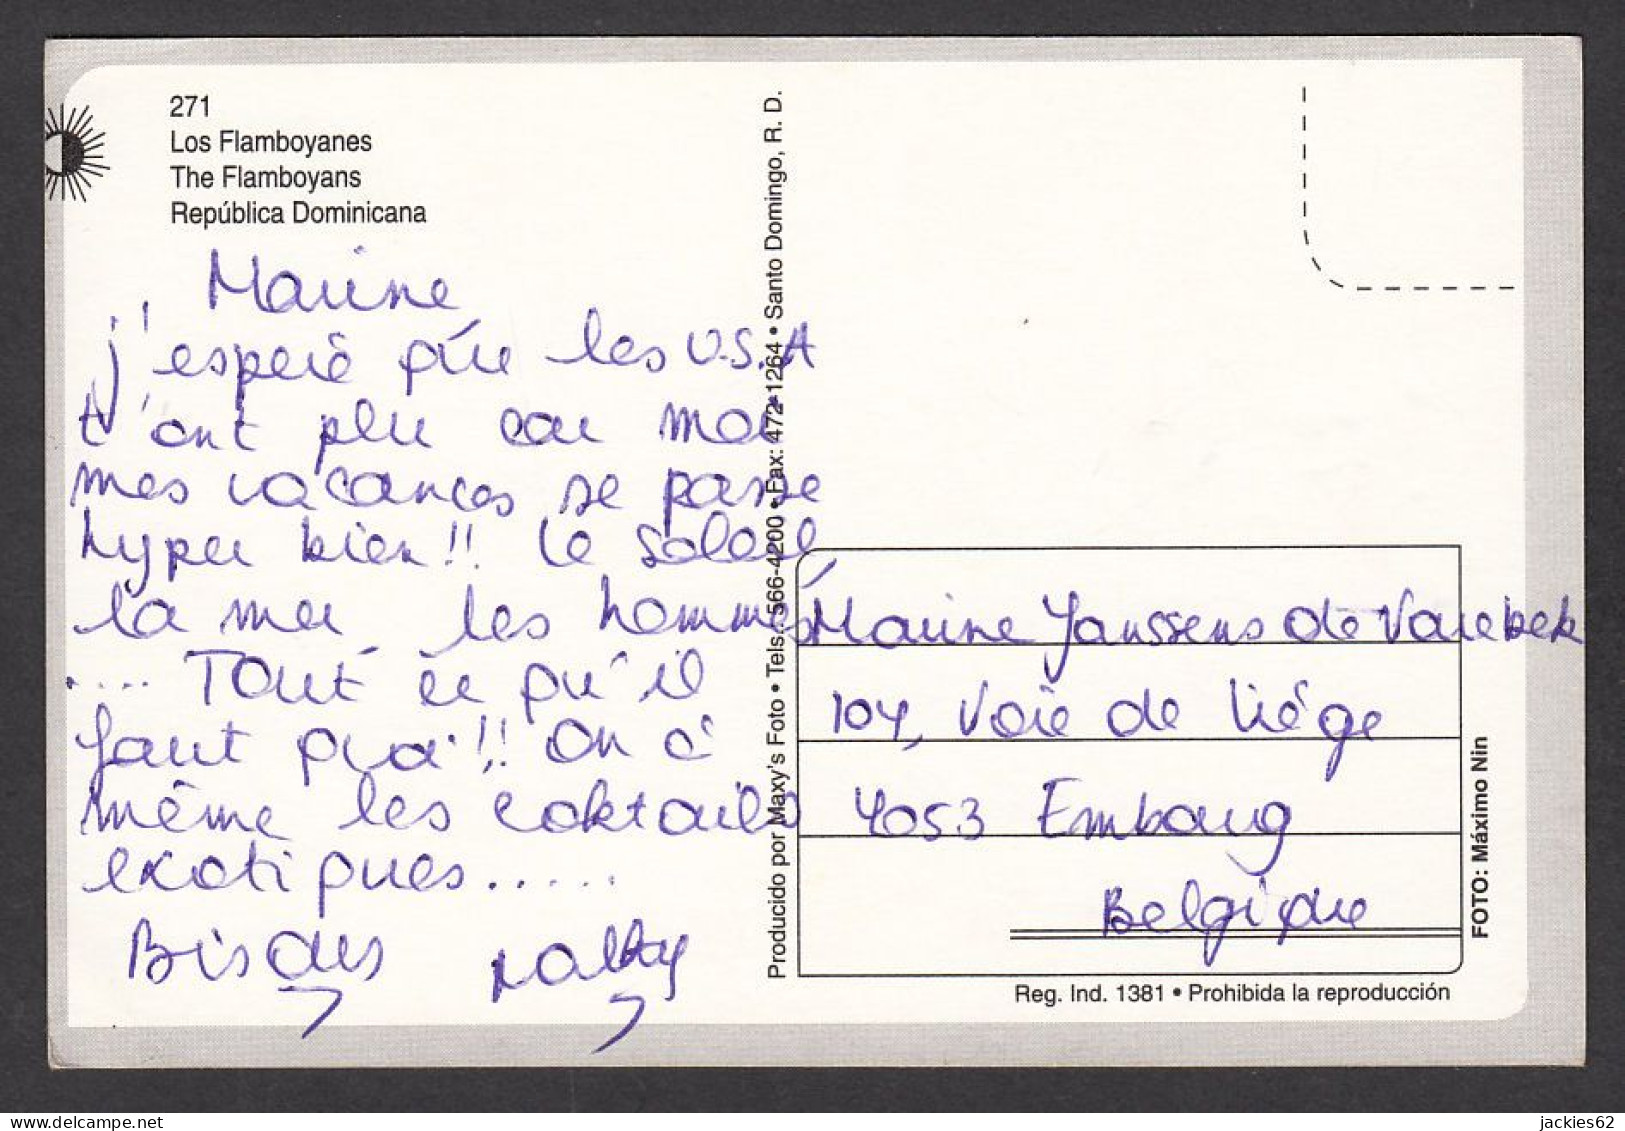 271
Los Flamboyanes
The Flamboyans
República Dominicana
Marine,
j'espère que les U.S.A
t'ont plu car moi
mes vacances se passe
hyper bien!! Le soleil,
la mer, les hommes
.... Tout ce qu'il
faut quoi!! On a
même les coktails
exotiques.....
Bisous
Producido por Maxy's Foto • Tels.: 566-4200 • Fax: 472-1264 • Santo Domingo, R. D.
Marine Janssens de Varebek
104, Voie de Liège
4053 Embourg
Belgique
FOTO: Máximo Nin
Reg. Ind. 1381 • Prohibida la reproducción
jackies62